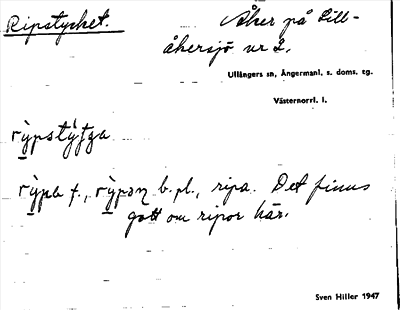 Ripstycket.
Åker på Lill-
åkersjö nr 2.
Ullångers sn, Ångermanl. s. doms. tg.
Västernorrl. l.
rỳpstỳtga
rỳpa f., rỳpən b. pl., ripa. Det finns
gott om ripor här.
Sven Hiller 1947